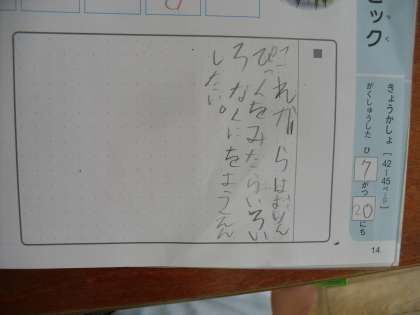 ピック
きょうかしょ［42－45ページ］
がくしゅうした ひ 7 がつ 20 にち
これからはおりん
ぴっくをみたらいろい
ろなくにをおうえん
したい。
14